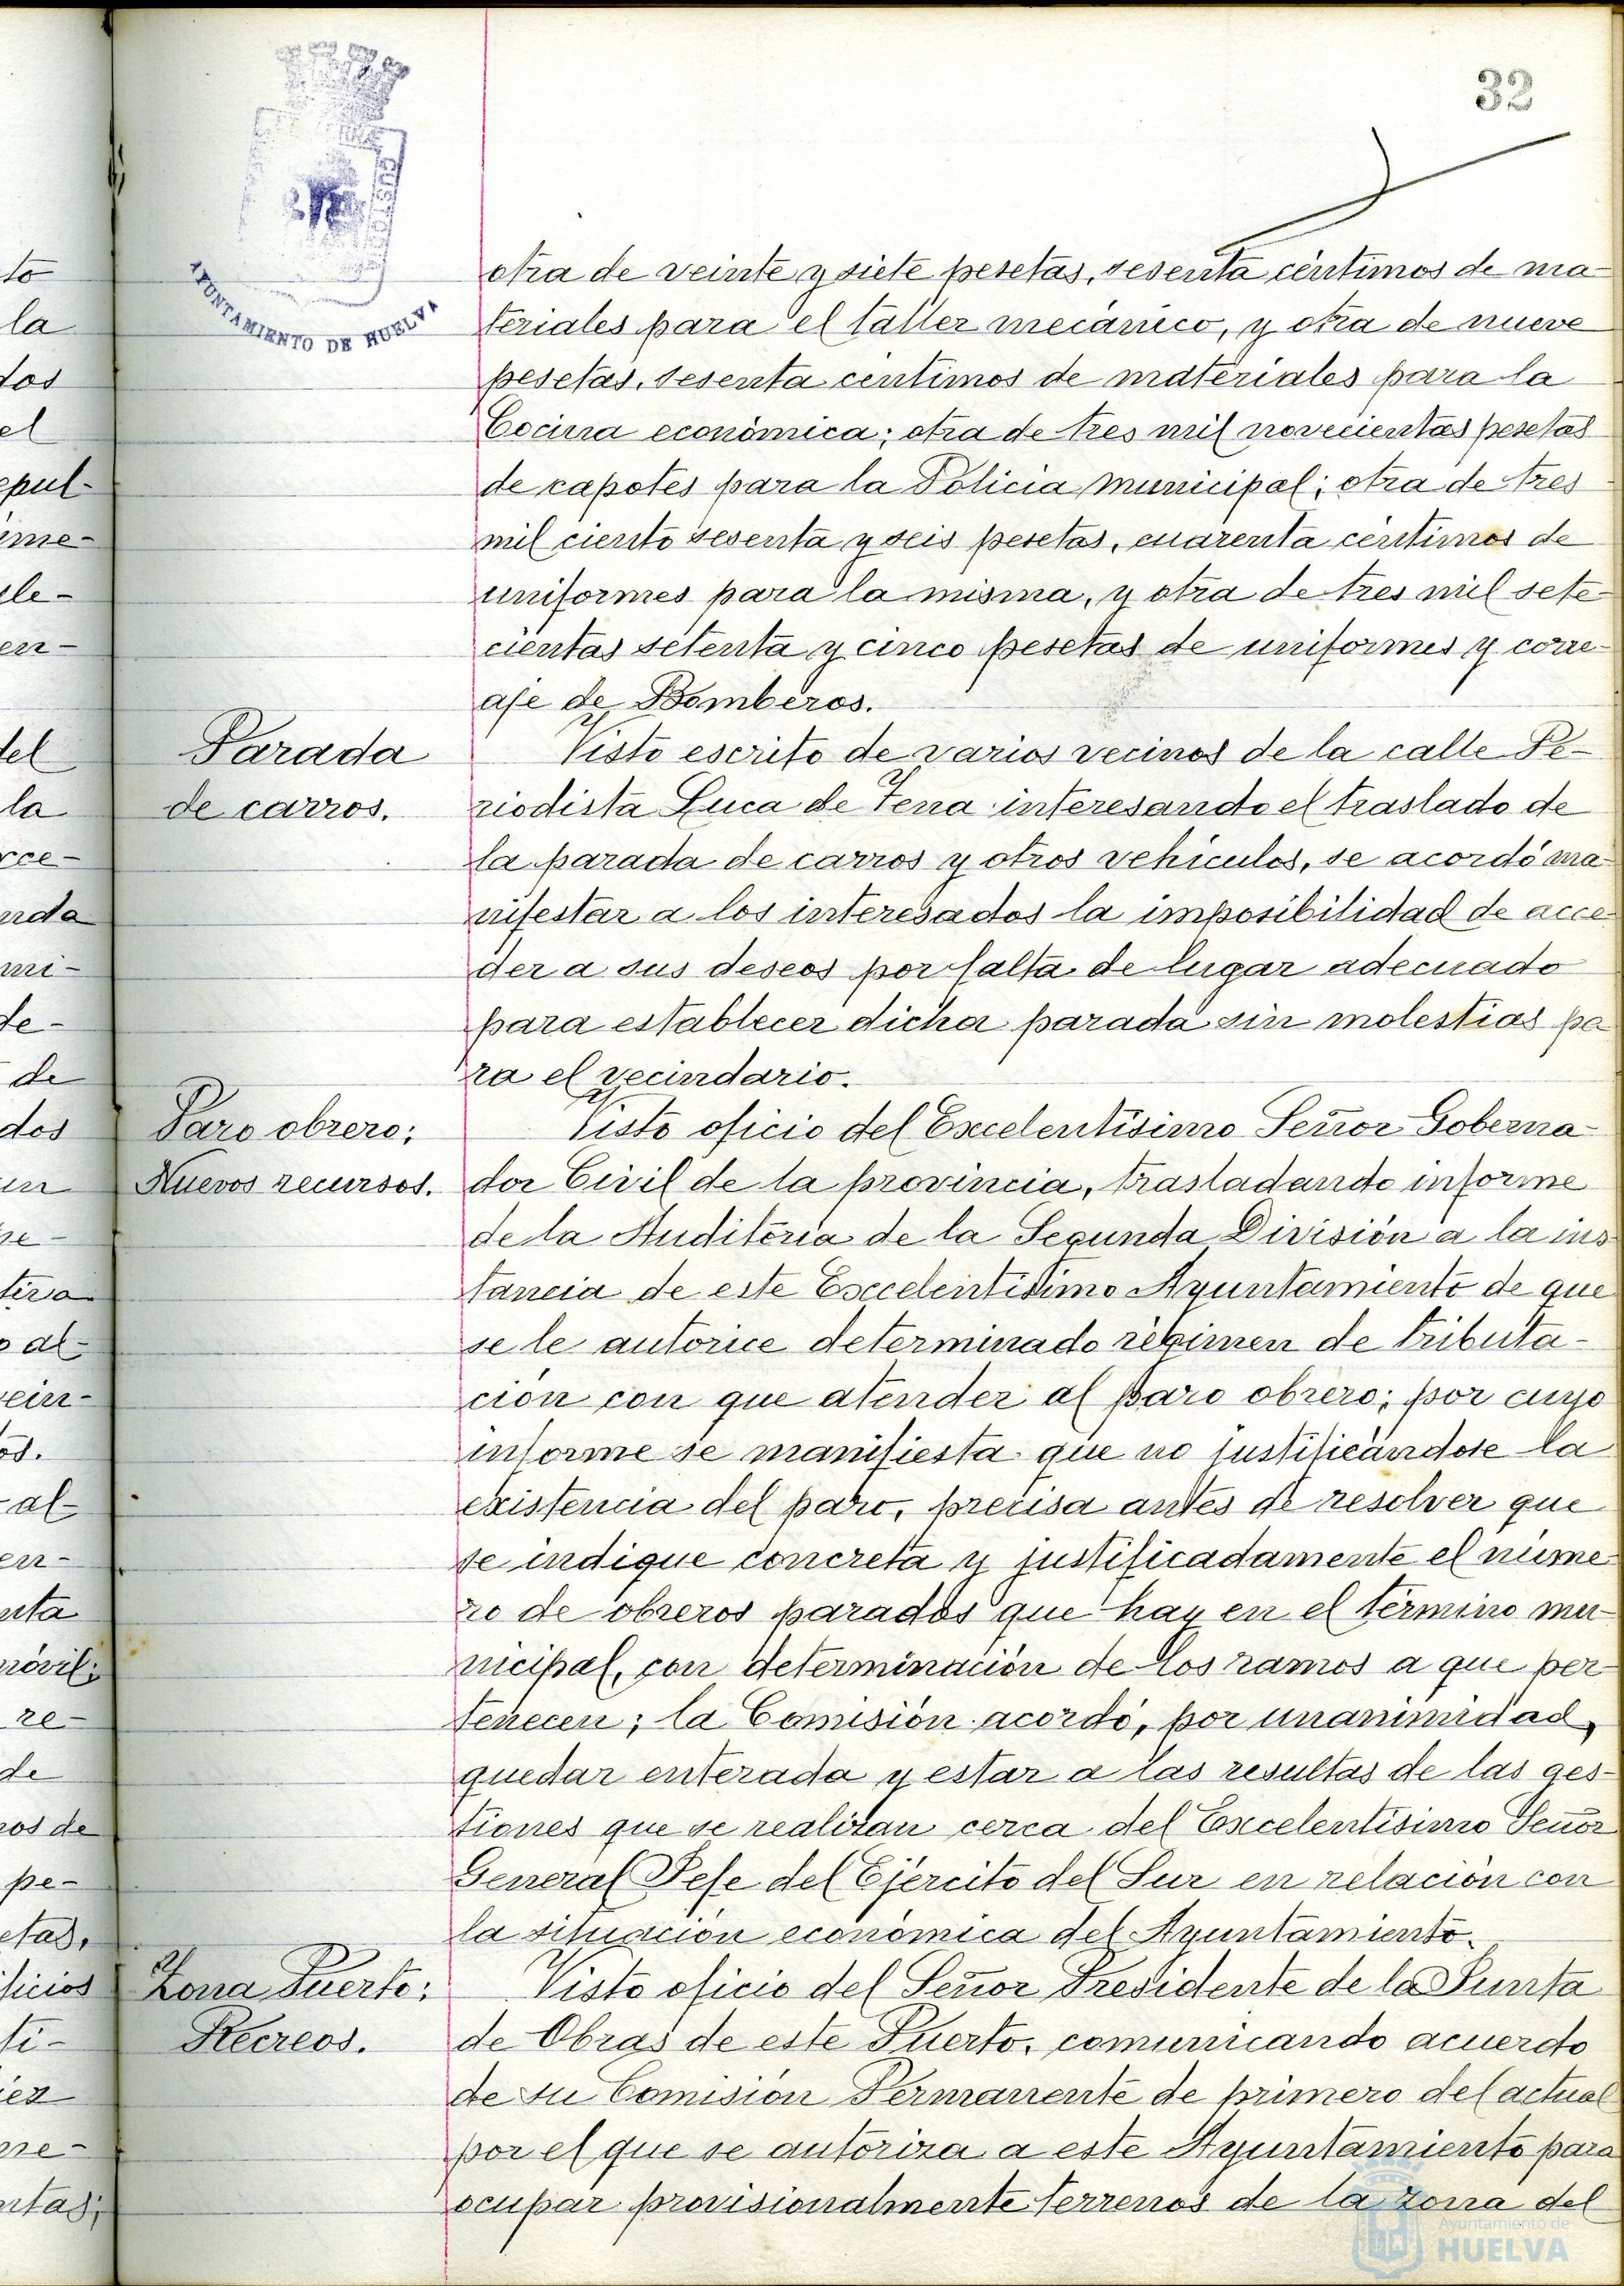 32
AYUNTAMIENTO DE HUELVA
otra de veinte y siete pesetas, sesenta céntimos de ma-
teriales para el taller mecánico, y otra de nueve
pesetas, sesenta centimos de materiales para la
Cocina económica; otra de tres mil novecientas pesetas
de capotes para la Policia Municipal; otra de tres
mil ciento sesenta y seis pesetas, cuarenta céntimos de
uniformes para la misma, y otra de tres mil sete-
cientas setenta y cinco pesetas de uniformes y corre-
aje de Bomberos.
Parada
de carros.
Visto escrito de varios vecinos de la calle Pe-
riodista Luca de Tena interesando el traslado de
la parada de carros y otros vehiculos, se acordó ma-
nifestar a los interesados la imposibilidad de acce-
der a sus deseos por falta de lugar adecuado
para establecer dicha parada sin molestias pa
ra el vecindario.
Paro obrero:
Nuevos recursos.
Visto oficio del Excelentísimo Señor Goberna-
dor Civil de la provincia, trasladando informe
de la Auditoria de la Segunda División a la ins
tancia de este Excelentísimo Ayuntamiento de que
se le autorice determinado régimen de tributa-
ción con que atender al paro obrero; por cuyo
informe se manifiesta que no justificándose la
existencia del paro, precisa antes de resolver que
se indique concreta y justificadamente el núme-
ro de obreros parados que hay en el término mu-
nicipal, con determinación de los ramos a que per-
tenecen; la Comisión acordó, por unanimidad,
quedar enterada y estar a las resultas de las ges-
tiones que se realizan cerca del Excelentísimo Señor
General Jefe del Ejército del Sur en relación con
la situación económica del Ayuntamiento.
Zona Puerto:
Recreos.
Visto oficio del Señor Presidente de la Junta
de Obras de este Puerto, comunicando acuerdo
de su Comisión Permanente de primero del actual
por el que se autoriza a este Ayuntamiento para
ocupar provisionalmente terrenos de la zona del
Ayuntamiento de
HUELVA